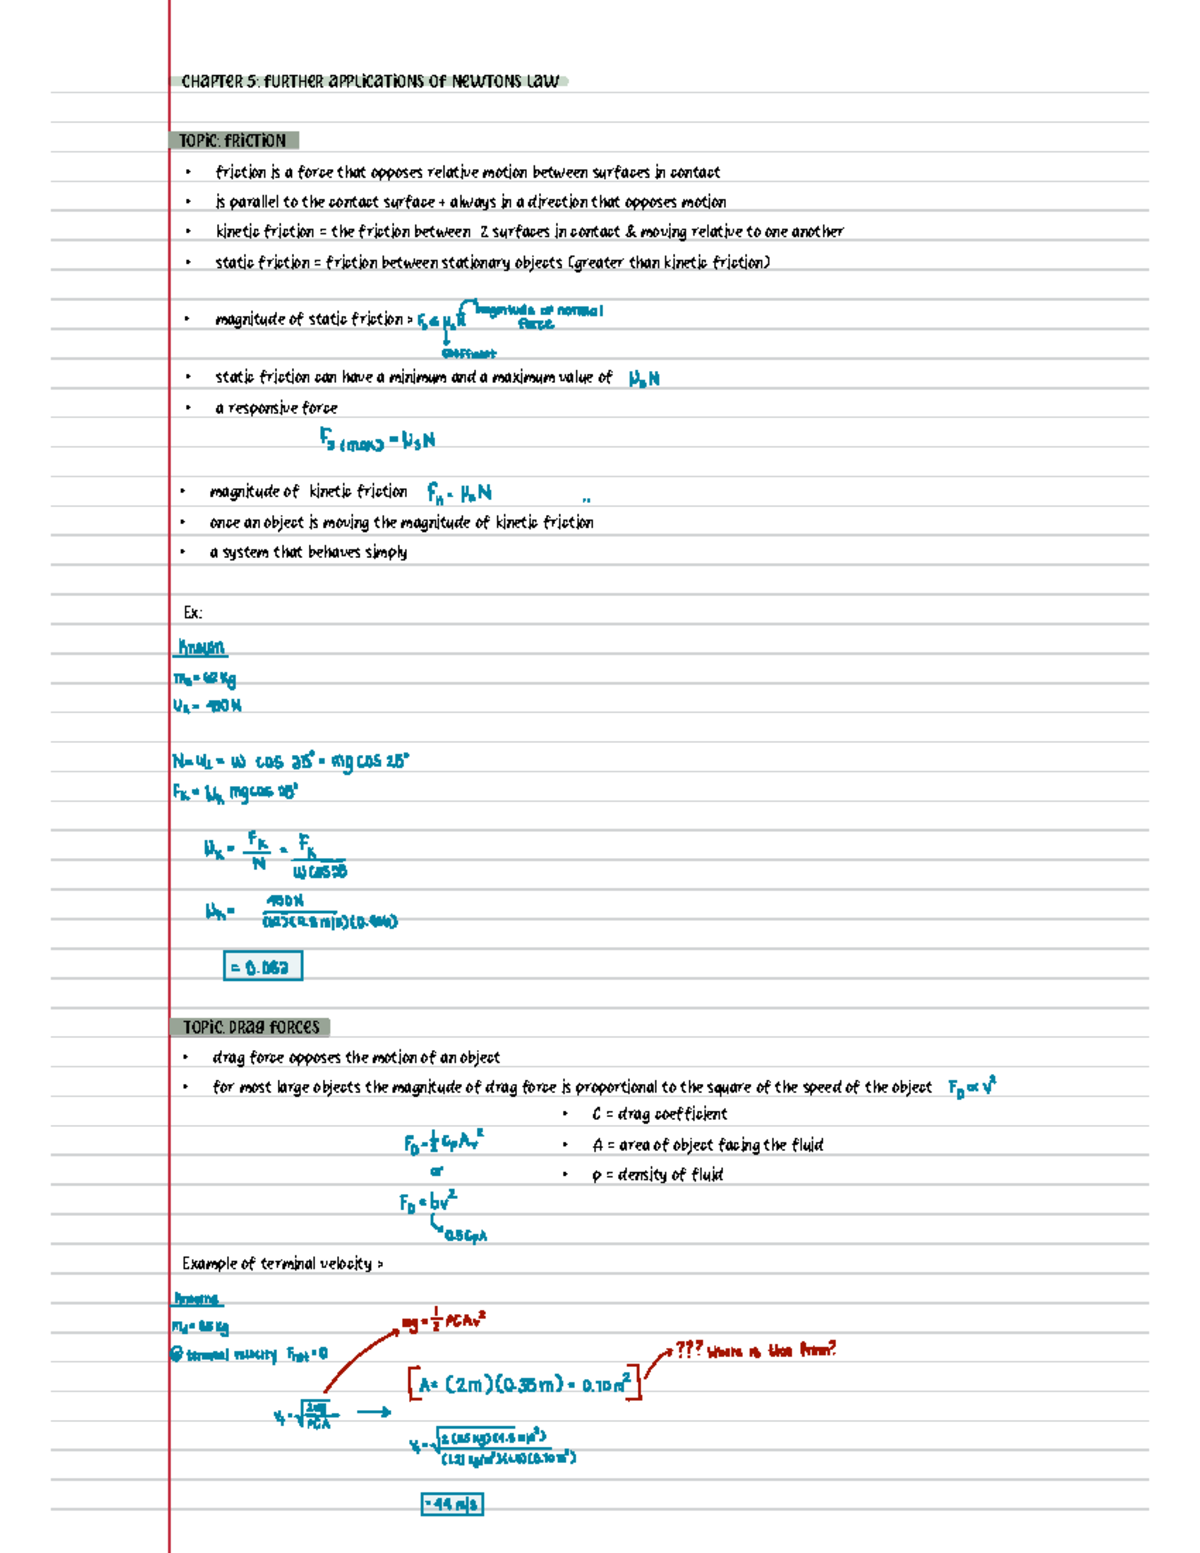 CHAPTER 5: FURTHER APPLICATIONS OF NEWTONS LAW
TOPIC: FRICTION
• friction is a force that opposes relative motion between surfaces in contact
• is parallel to the contact surface + always in a direction that opposes motion
• kinetic friction = the friction between 2 surfaces in contact & moving relative to one another
• static friction = friction between stationary objects (greater than kinetic friction)
• magnitude of static friction > Fs ≤ μs N magnitude of normal force
coefficient
• static friction can have a minimum and a maximum value of μs N
• a responsive force
Fs (max) = μs N
• magnitude of kinetic friction fk = μk N
• once an object is moving the magnitude of kinetic friction
• a system that behaves simply
Ex:
Known
m = 62 kg
N = w⊥ = w cos 25° = mg cos 25°
Fk = μk mg cos 25°
μk = Fk / N = Fk / w cos 25
μk =
= 0.082
TOPIC: DRAG FORCES
• drag force opposes the motion of an object
• for most large objects the magnitude of drag force is proportional to the square of the speed of the object FD ∝ v²
• C = drag coefficient
FD = ½ CρAv² • A = area of object facing the fluid
or • ρ = density of fluid
FD = bv²
0.5CρA
Example of terminal velocity >
Knowns
mg = ½ ρCAv²
@ terminal velocity Fnet = 0
??? Where is this from?
[A = (2m)(0.35m) = 0.70m²]
vt = √(2mg / ρCA) →
= 44 m/s